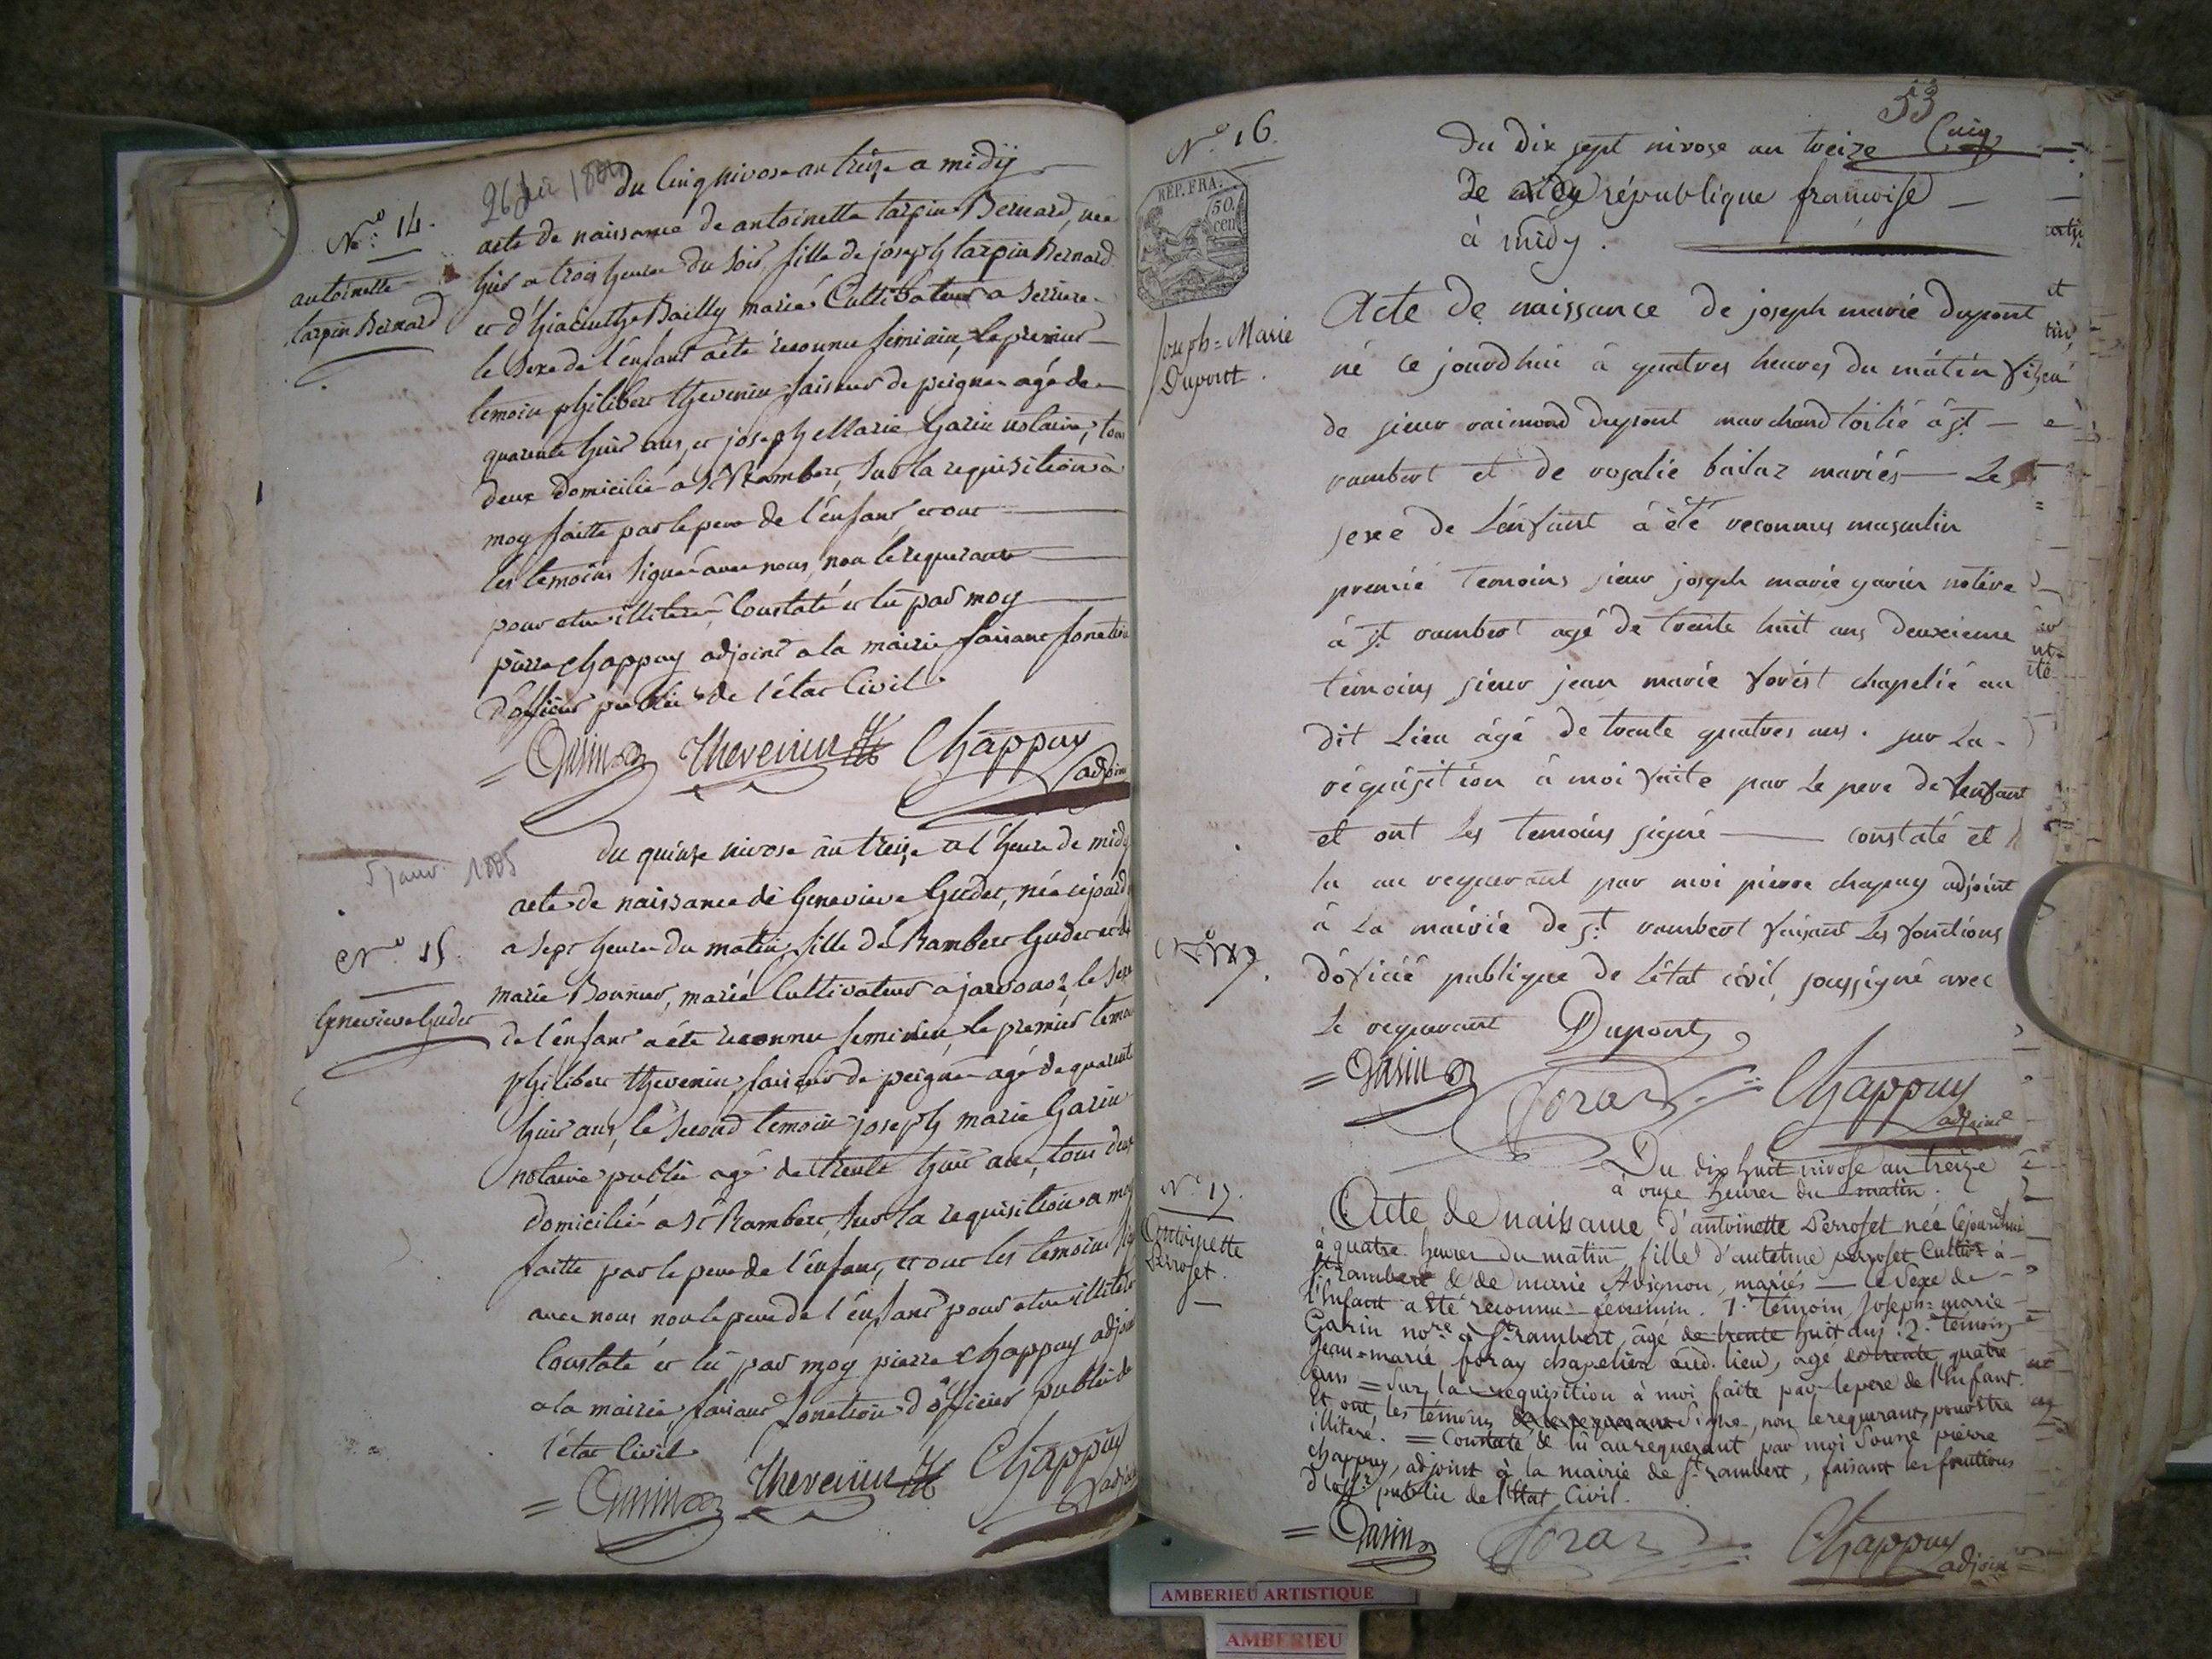 26 1804
du Cinq nivose an treize a midÿ
N.º 14.
antoinette
tarpin Bernard
acte de naissance de antoinette tarpin Bernard, née
hier a trois heures du soir, fille de joseph tarpin Bernard
et d'hiacinthe Bailly marié Cultivateur a Serriere
le Sexe de l'enfant a été reconnu feminin, le premier
temoin philibert thevenin faiseur de peigne agé de
quarante huit ans, et joseph Marie Garin notaire, tous
deux domicilié a St Rambert, sur la requisition a
moy faitte par le pere de l'enfant, et ont
les temoins signé avec nous, non le requerant
pour etre illiteré, Constaté et lu par moy
pierre Chappuy adjoint a la mairie faisant fonction
d'officier public de l'état Civil.
= Garin Thevenin Chappuy
adjoint
5 janv. 1805
du quinze nivose an treize a l'heure de midy
N.º 15.
Genevieve Gudet
acte de naissance de Genevieve Gudet, née cejourd
a sept heures du matin, fille de Rambert Gudet et de
marie Bonnur, marié Cultivateur a javornoz, le Sexe
de l'enfant a été reconnu feminin, le premier temoin
philibert thevenin, faiseur de peigne agé de quarante
huit ans, le second temoin joseph marie Garin
notaire public agé de trente huit ans, tous deux
domicilié a St Rambert, sur la requisition a moy
faitte par le pere de l'enfant, et ont les temoins signé
avec nous non le pere de l'enfant pour etre illiteré
Constaté et lu par moy pierre Chappuy adjoint
a la mairie faisant fonction d'officier public de
l'état Civil
= Garin Thevenin Chappuy
adjoint
53
N.º 16.
RÉP. FRA.
50.
cen
Joseph=Marie
Dupont.
du dix sept nivose an treize
de république françoise
à midy.
Acte de naissance de joseph marie dupont
né ce jourdhui à quatres heures du mâtin
de sieur raimond dupont marchand toilié à st
rambert et de rosalie bailaz mariés Le
sexe de L'enfant à été reconnus masculin
premié temoins sieur joseph marie garin notère
à st rambert agé de trente huit ans deuxieme
temoins sieur jean marie forést chapelié au
dit Lieu âgé de trente quatres ans. sur La
réquisition à moi faite par Le pere de Lenfant
et ont Les temoins signé constaté et
lu au requerant par moi pierre chapuy adjoint
à La mairie de st rambert faisant Les fonctions
d'oficié publique de L'état civil soussigné avec
Le requerant Dupont
= Garin Foray = Chappuy
adjoint
Du dix huit nivose an treize
à onze heures du matin.
N.º 17.
Antoinette
Perroset.
Acte de naissance d'antoinette Perroset née cejourdhui
à quatre heures du matin fille d'antelme perroset Cultivr à
St rambert & de marie Avignon, mariés le Sexe de
l'Enfant a été reconnu féminin. 1er témoin, Joseph=marie
Garin nore à St rambert, âgé de trente huit ans: 2e témoin
Jean=marie foray chapelier aud. lieu, agé de trente quatre
ans = Sur la requisition à moi faite par le pere de l'Enfant.
Et ont les témoins signé, non le requerant, pour etre
illiteré. = Constaté & lu au requerant par moi Soune pierre
chappuy, adjoint à la mairie de St rambert, faisant les fonctions
d'offr public de l'Etat Civil.
= Garin Foray = Chappuy
adjoint
AMBERIEU ARTISTIQUE
AMBERIEU